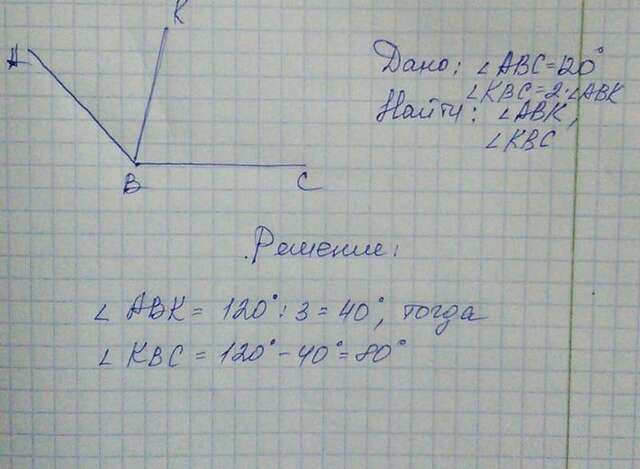 K
A
B
C
Дано: ∠ABC=120°
∠KBC=2·∠ABK
Найти: ∠ABK,
∠KBC
Решение:
∠ ABK = 120° : 3 = 40°, тогда
∠ KBC = 120° - 40° = 80°